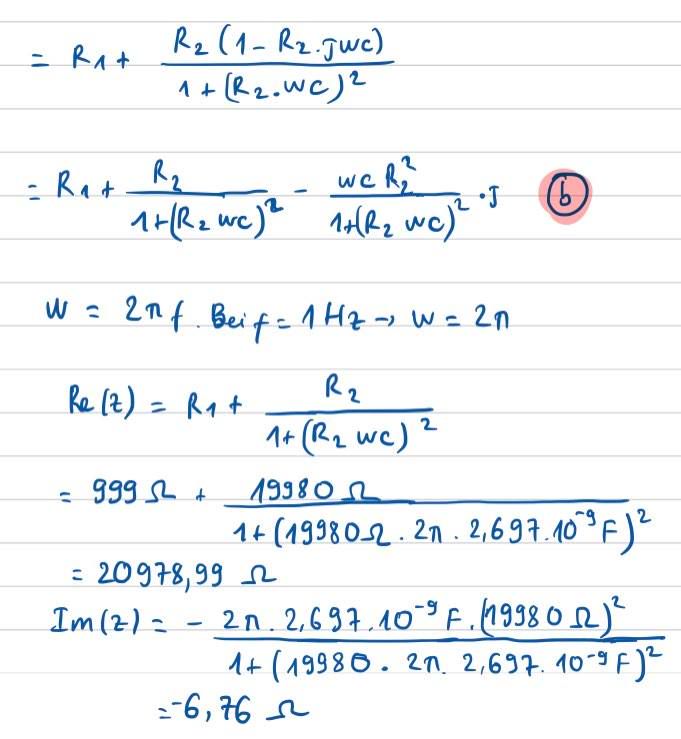 = R1 + R2 (1 - R2 . jwc) / 1 + (R2 . wc)²
= R1 + R2 / 1+(R2 wc)² - wc R2² / 1+(R2 wc)² . J (b)
w = 2πf . Bei f = 1Hz → w = 2π
Re(z) = R1 + R2 / 1+(R2 wc)²
= 999 Ω + 19980 Ω / 1+(19980Ω . 2π . 2,697.10⁻⁹ F)²
= 20978,99 Ω
Im(z) = - 2π . 2,697.10⁻⁹ F . (19980 Ω)² / 1+(19980 . 2π . 2,697. 10⁻⁹ F)²
= -6,76 Ω